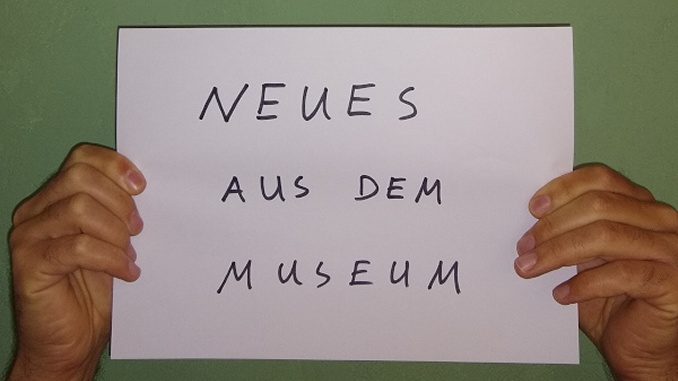 NEUES
AUS DEM
MUSEUM